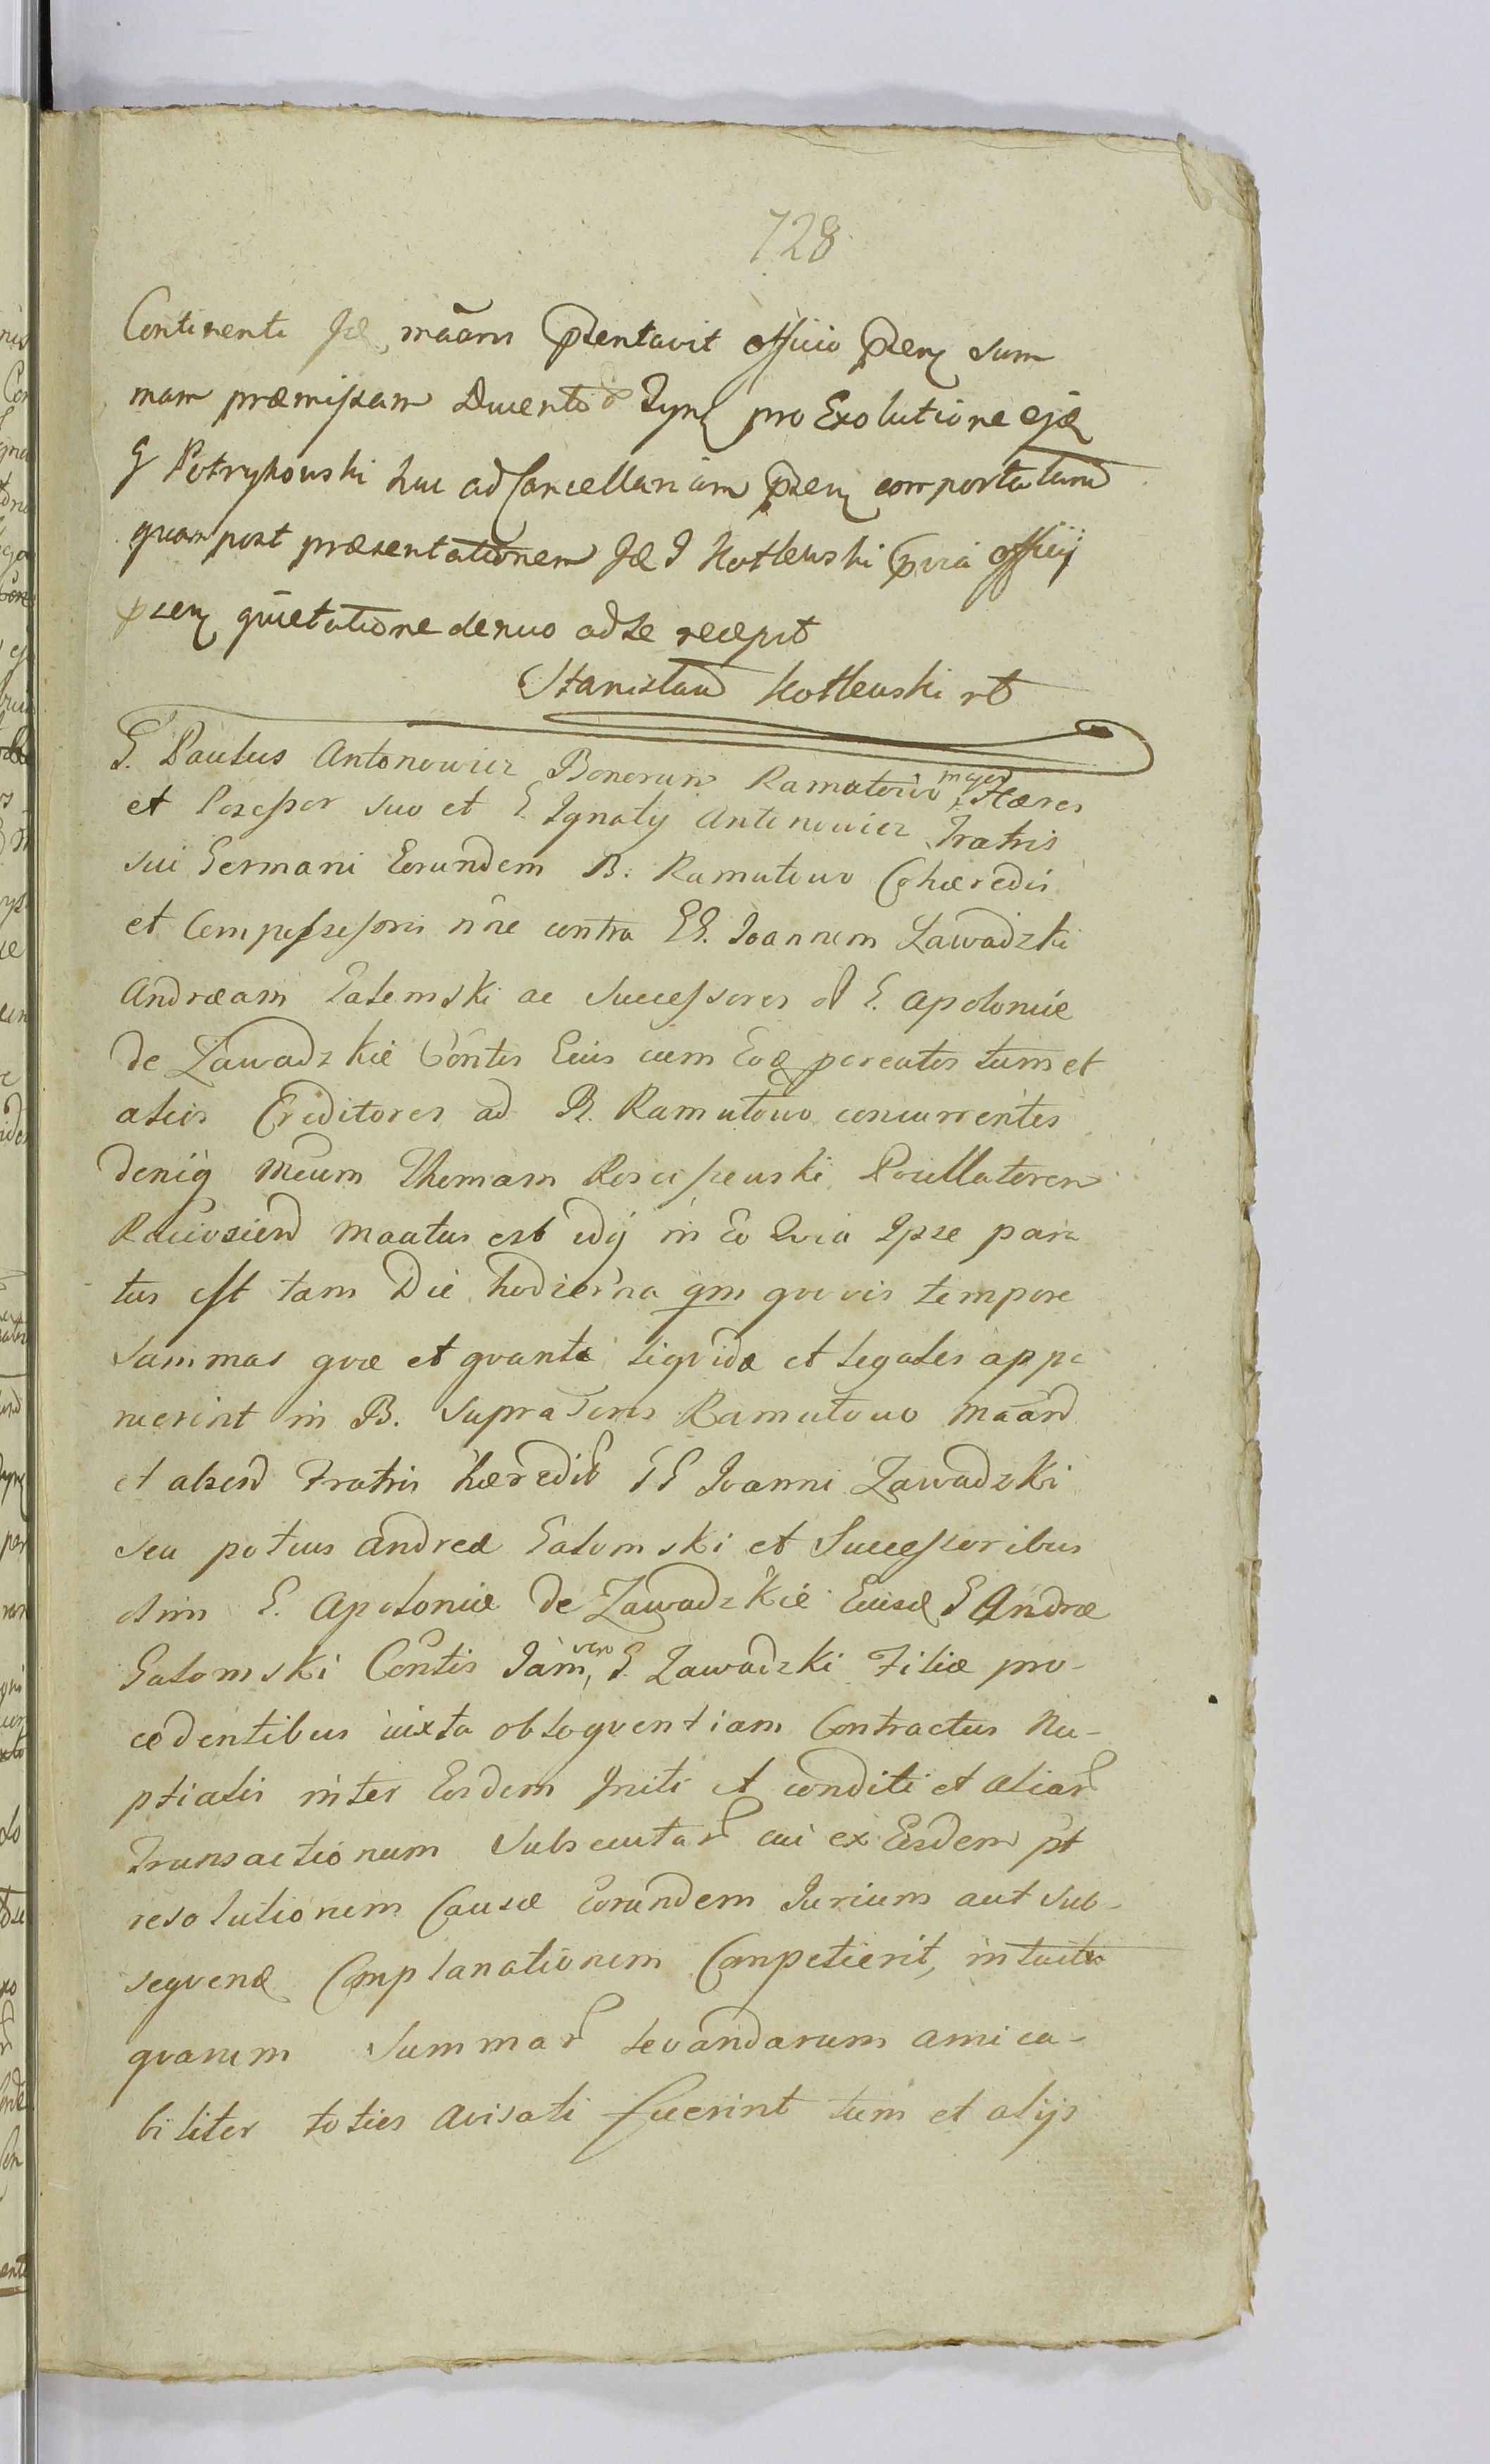 728
Continenti Id, maãns Pzentavit officio Pzenz sum
mam præmissam Ducentos Tynf pro Exolutione ejq
G Potrykowski huc ad Cancellariam Pzenz comportatam
quam post præsentationem Id G Kotlewski Pvia officij
pzenz quietatione denuo ad se recepit
Stanisław Kotlewski rt
G. Paulus Antonowicz Bonorum Ramutowo major Hæres
et Posessor suo et G Ignatij Antonowicz Fratris
sui Germani Eorundem B. Ramutowo Cohæredis
et Compossessoris nne contra GG. Joannem Zawadzki
Andræam Galomski ac Successores ol G. Apoloniæ
de Zawadzkie Contis Eius cum Eoq pcreatos tum et
alios Creditores ad B. Ramutowo concurrentes
deniq Meum Thomam Posellatorem
maatus est idq in Eo Qvia Ipse para
tus est tam Die hodierna qm qvovis tempore
Summas qvæ et qvantæ liqvidæ et legales appa
ruerint in B. Supra Ramutowo maand
et absend Fratris hæredib GG Joanni Zawadzki
seu potius Andreæ Galomski et Successoribus
olim G. Apoloniæ de Zawadzkie Eiusd G Andræ
Galomski Contis Jam vero G. Zawadzki Filiæ pro-
cedentibus iuxta obloqventiam Contractus Nu-
ptialis inter Eosdem Initi et conditi et aliar
Transactionum Subsecutar cui ex Eisdem pt
resolutionem Causæ Eorundem Jurium aut sub-
seqvend Complanationem Competierit, intuitu
qvarum Summar levandarum amica-
biliter toties avisati fuerint tum et alijs